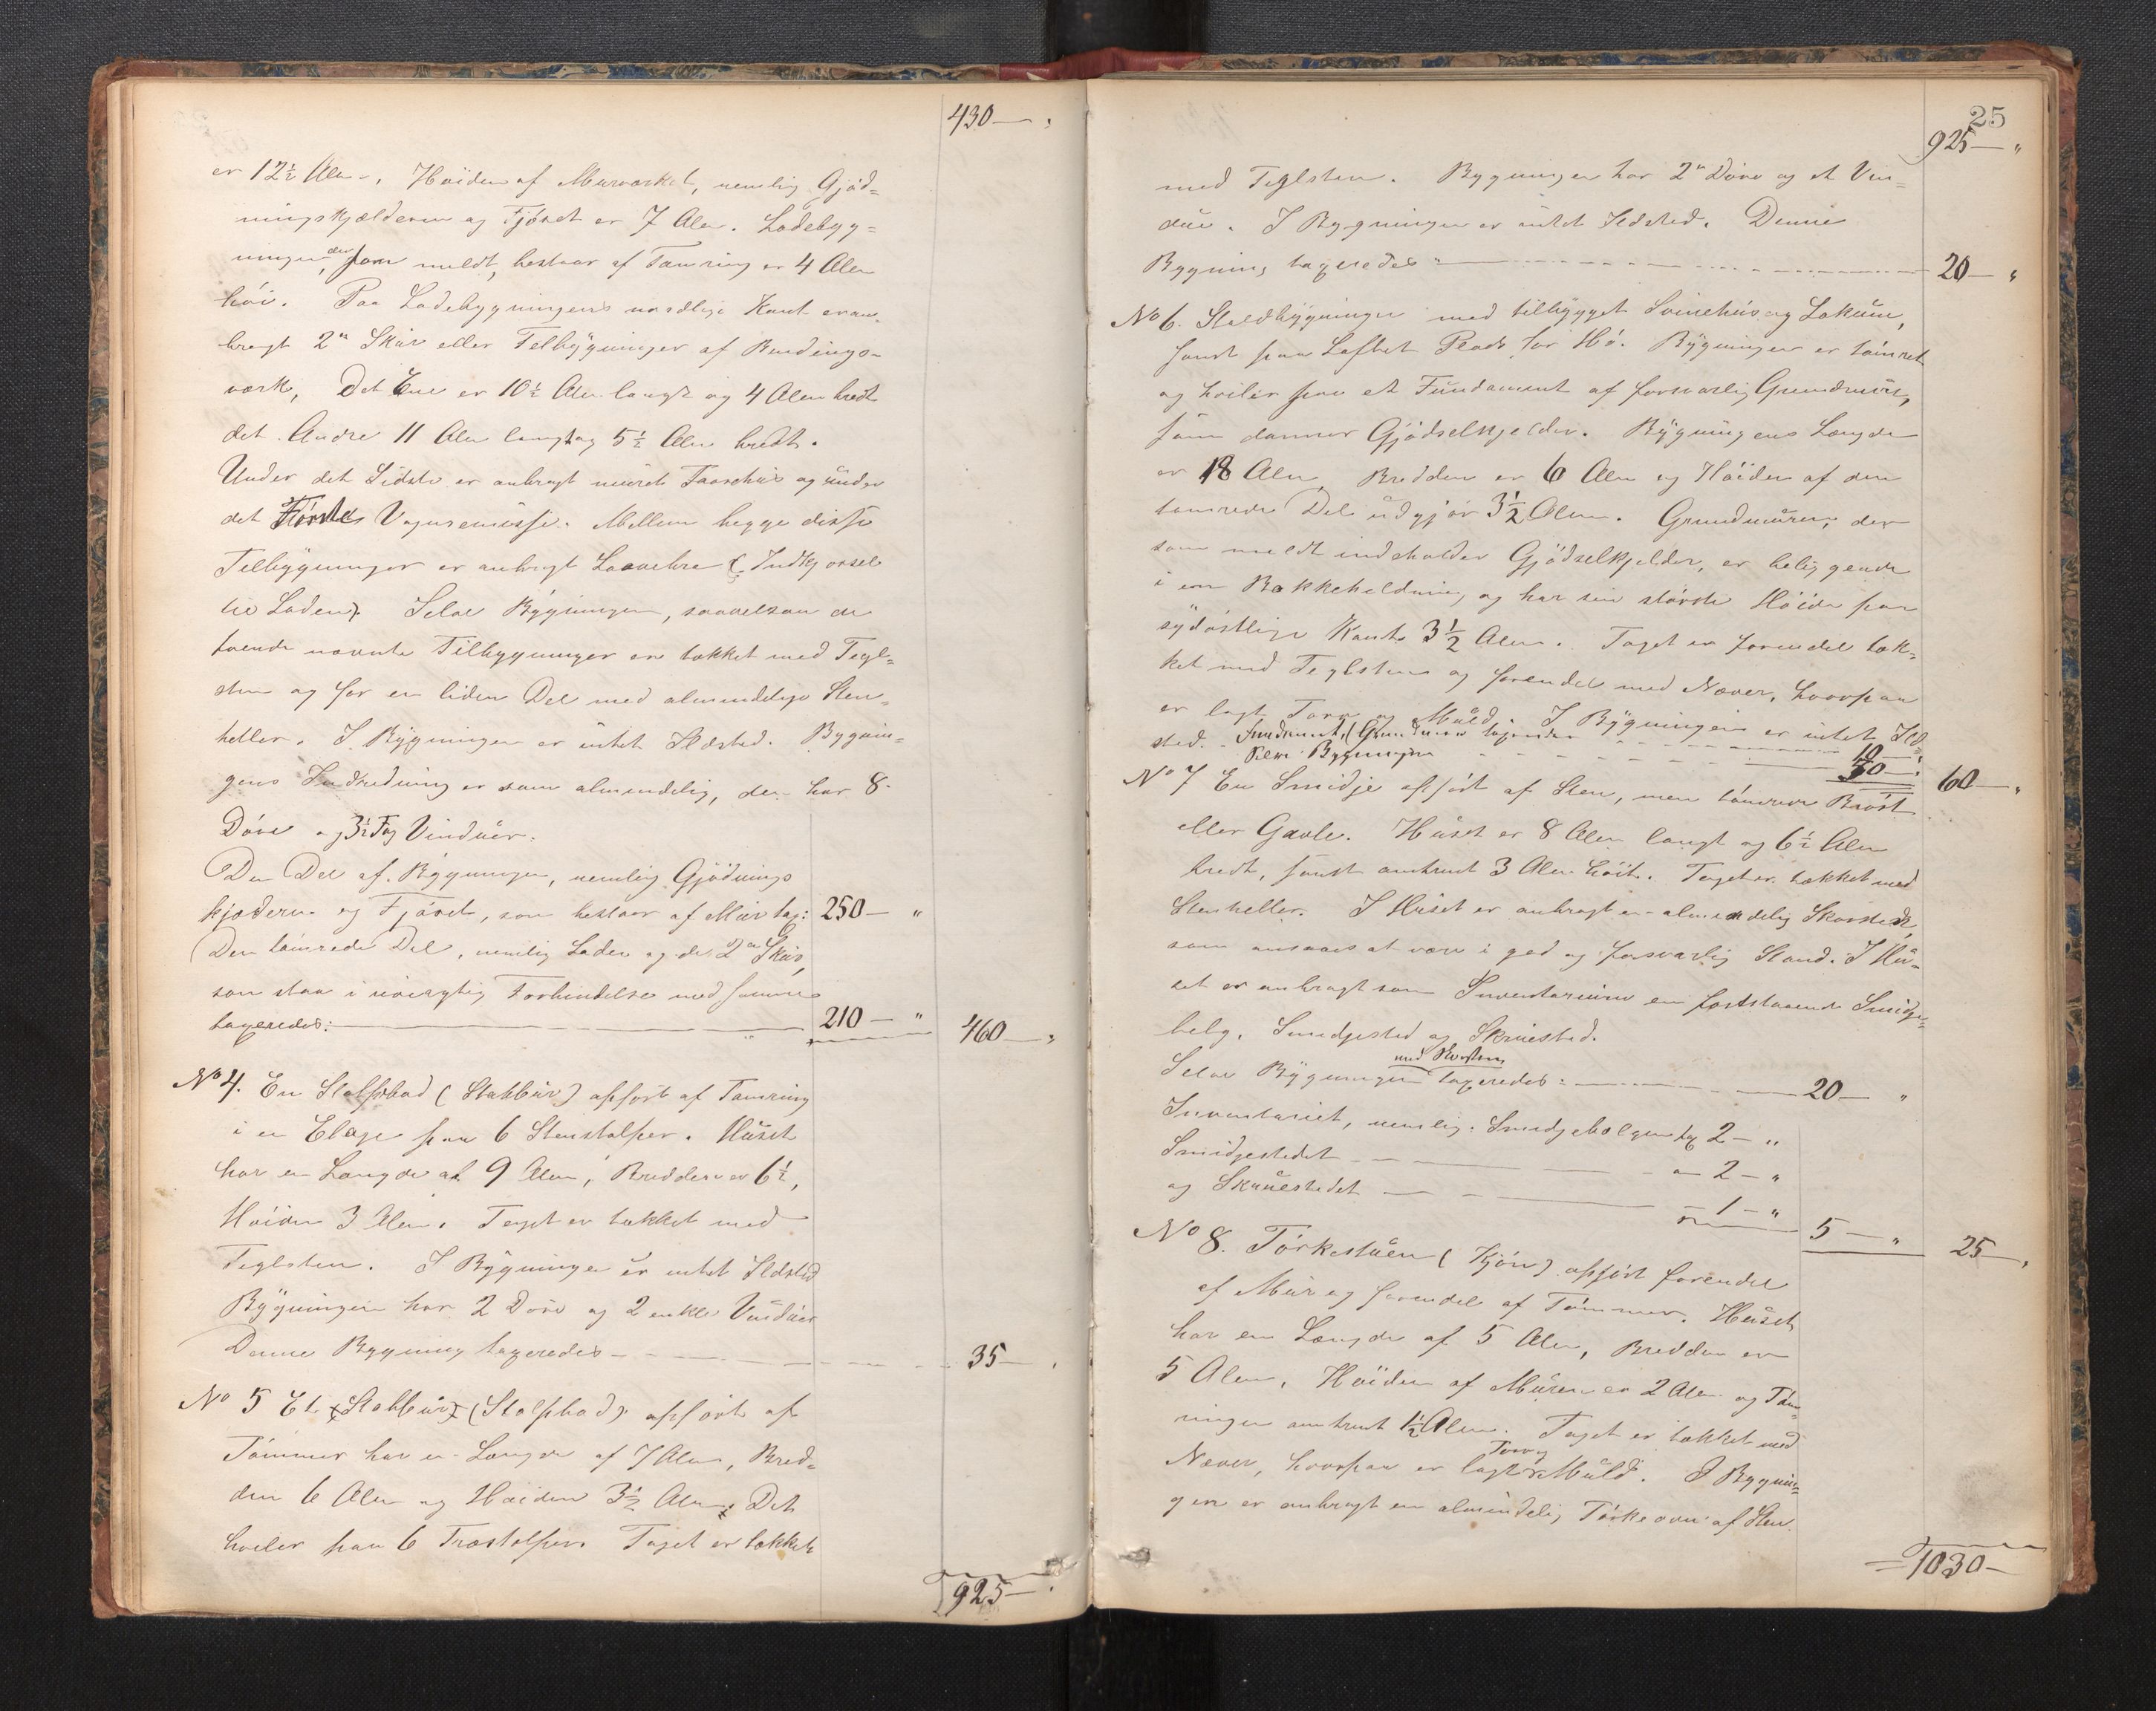 430 — "
er 12½ Alen. Høiden af Murværket, nemlig Gjød=
ningskjælderen og Fjøset er 7 Alen. Ladebyg=
ningen, der som meldt, bestaar af Tømring er 4 Alen
høi. Paa Ladebygningens nordlige Kant er an=
bragt 2de Skur eller Tilbygninger af Bindings=
værk, Det Ene er 10½ Alen langt og 4 Alen bredt
det Andre 11 Alen langt og 5½ Alen bredt.
Under det Sidste er anbragt muret Faarehus og under
det Første Vognremisse. Mellem begge disse
Tilbygninger er anbragt Laavebro (Indkjørsel
til Laden). Selve Bygningen, saavelsom de
tvende nævnte Tilbygninger er tækket med Tegl=
sten og for en liden Del med almindelige Sten=
heller. I Bygningen er intet Ildsted. Bygnin=
gens Indredning er som almindelig, den har 8
Døre og 3½ Fag Vinduer.
Den Del af Bygningen, nemlig Gjødnings
kjælderen og Fjøset, som bestaar af Mur tax: 250 — "
Den tømrede Del, nemlig Laden og de 2de Skur,
som staa i uieragtig Forbindelse med samme
taxeredes: 210 — " 460 — "
No 4. En Stolpebod (Stabbur) opført af Tømring
i en Etage paa 6 Stenstolper. Huset
har en Længde af 9 Alen, Bredden er 6½,
Høiden 3 Alen. Taget er tækket med
Teglsten. I Bygningen er intet Ildsted
Bygningen har 2 Døre og 2 enkle Vinduer
Denne Bygning taxeredes 35 —
No 5 Et Stabbur (Stolpebod) opført af
Tømmer har en Længde af 7 Alen, Bred=
den 6 Alen og Høiden 3½ Alen. Det
hviler paa 6 Træstolper. Taget er tækket
925 —
25
925 — "
med Teglsten. Bygningen har 2de Døre og et Vin=
due. I Bygningen er intet Ildsted. Denne
Bygning taxeredes 20 — "
No 6. Staldbygningen med tilbygget Svinehus og Lokum,
samt paa Loftet Plads for Hø. Bygningen er tømret
og hviler paa et Fundament af forsvarlig Grundmur,
som danner Gjødselkjelder. Bygningens Længde
er 18 Alen Bredden er 6 Alen og Høiden af den
tømrede Del udgjør 3½ Alen. Grundmuren, der
som meldt indeholder Gjødselkjelder, er beliggende
i en Bakkeheldning og har sin største Høide paa
sydøstlige Kant 3½ Alen. Taget er forendel tæk=
ket med Teglsten og forendel med Næver, hvorpaa
er lagt Torv og Muld. I Bygningen er intet Ild=
sted. Fundament (Grundmur taxeredes 10 — "
Selve Bygningen 50 — " 60 — "
No 7 En Smidje opført af Sten, men tømrede Brøst
eller Gavle. Huset er 8 Alen langt og 6½ Alen
bredt, samt omtrent 3 Alen høit. Taget er tækket med
Stenheller. I Huset er anbragt en almindelig Skorsten,
som ansaaes at være i god og forsvarlig Stand. I Hu=
set er anbragt som Inventarium en faststaaende Smidje=
belg, Smidjested og Skruested.
Selve Bygningen med Skorsten taxeredes: 20 — "
Inventariet, nemlig: Smidjebælgen tax 2 — "
Smidjestedet 2 — "
og Skruestedet 1 — "
5 — " 25 —
No 8. Tørkestuen (Kjøn) opført forendel
af Mur og forendel af Tømmer. Huset
har en Længde af 5 Alen, Bredden er
5 Alen, Høiden af Muren er 2 Alen og Tøm=
ringen omtrent 1½ Alen. Taget er tækket med
Næver, hvorpaa er lagt Torv og Muld. I Bygnin=
gen er anbragt en almindelig Tørkeovn af Sten.
= 1030 —